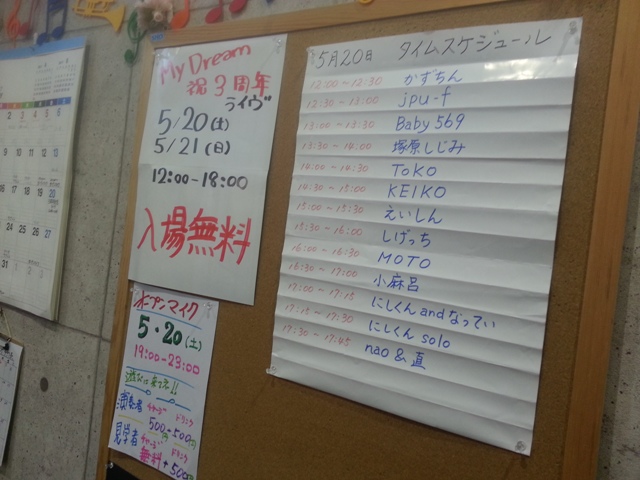 My Dream
祝3周年
ライヴ
5/20(土)
5/21(日)
12:00~18:00
入場無料
オープンマイク
5・20(土)
19:00~23:00
演奏者 チャージ ドリンク
500+500
見学者 チャージ ドリンク
無料+500
5月20日 タイムスケジュール
12:00~12:30 かずちん
12:30~13:00 jpu-f
13:00~13:30 Baby 569
13:30~14:00 塚原しじみ
14:00~14:30 ToKO
14:30~15:00 KEIKO
15:00~15:30 えいしん
15:30~16:00 しげっち
16:00~16:30 MOTO
16:30~17:00 小麻呂
17:00~17:15 にしくん and なってぃ
17:15~17:30 にしくん solo
17:30~17:45 nao & 直